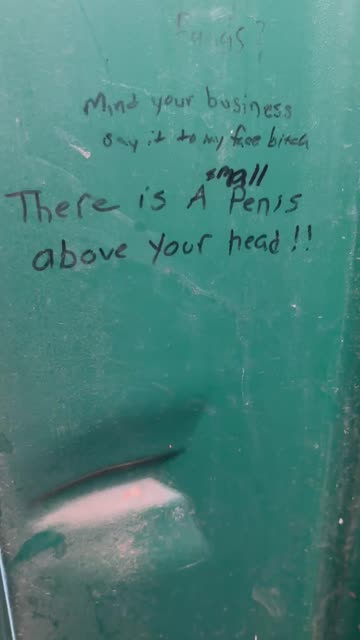 Mind your business
say it to my face bitch
small
There is A Penis
above your head!!